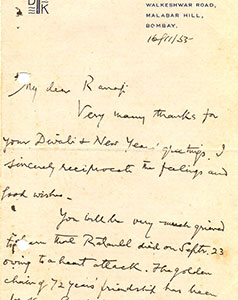 WALKESHWAR ROAD,
MALABAR HILL,
BOMBAY.
16/11/53
My dear Ramaji
Very many thanks for
your Diwali & New Year's greetings. I
sincerely reciprocate the feelings and
good wishes.
You will be very much grieved
to learn that Ratanlal died on Septr. 23
owing to a heart attack. The golden
chain of 72 years friendship has been